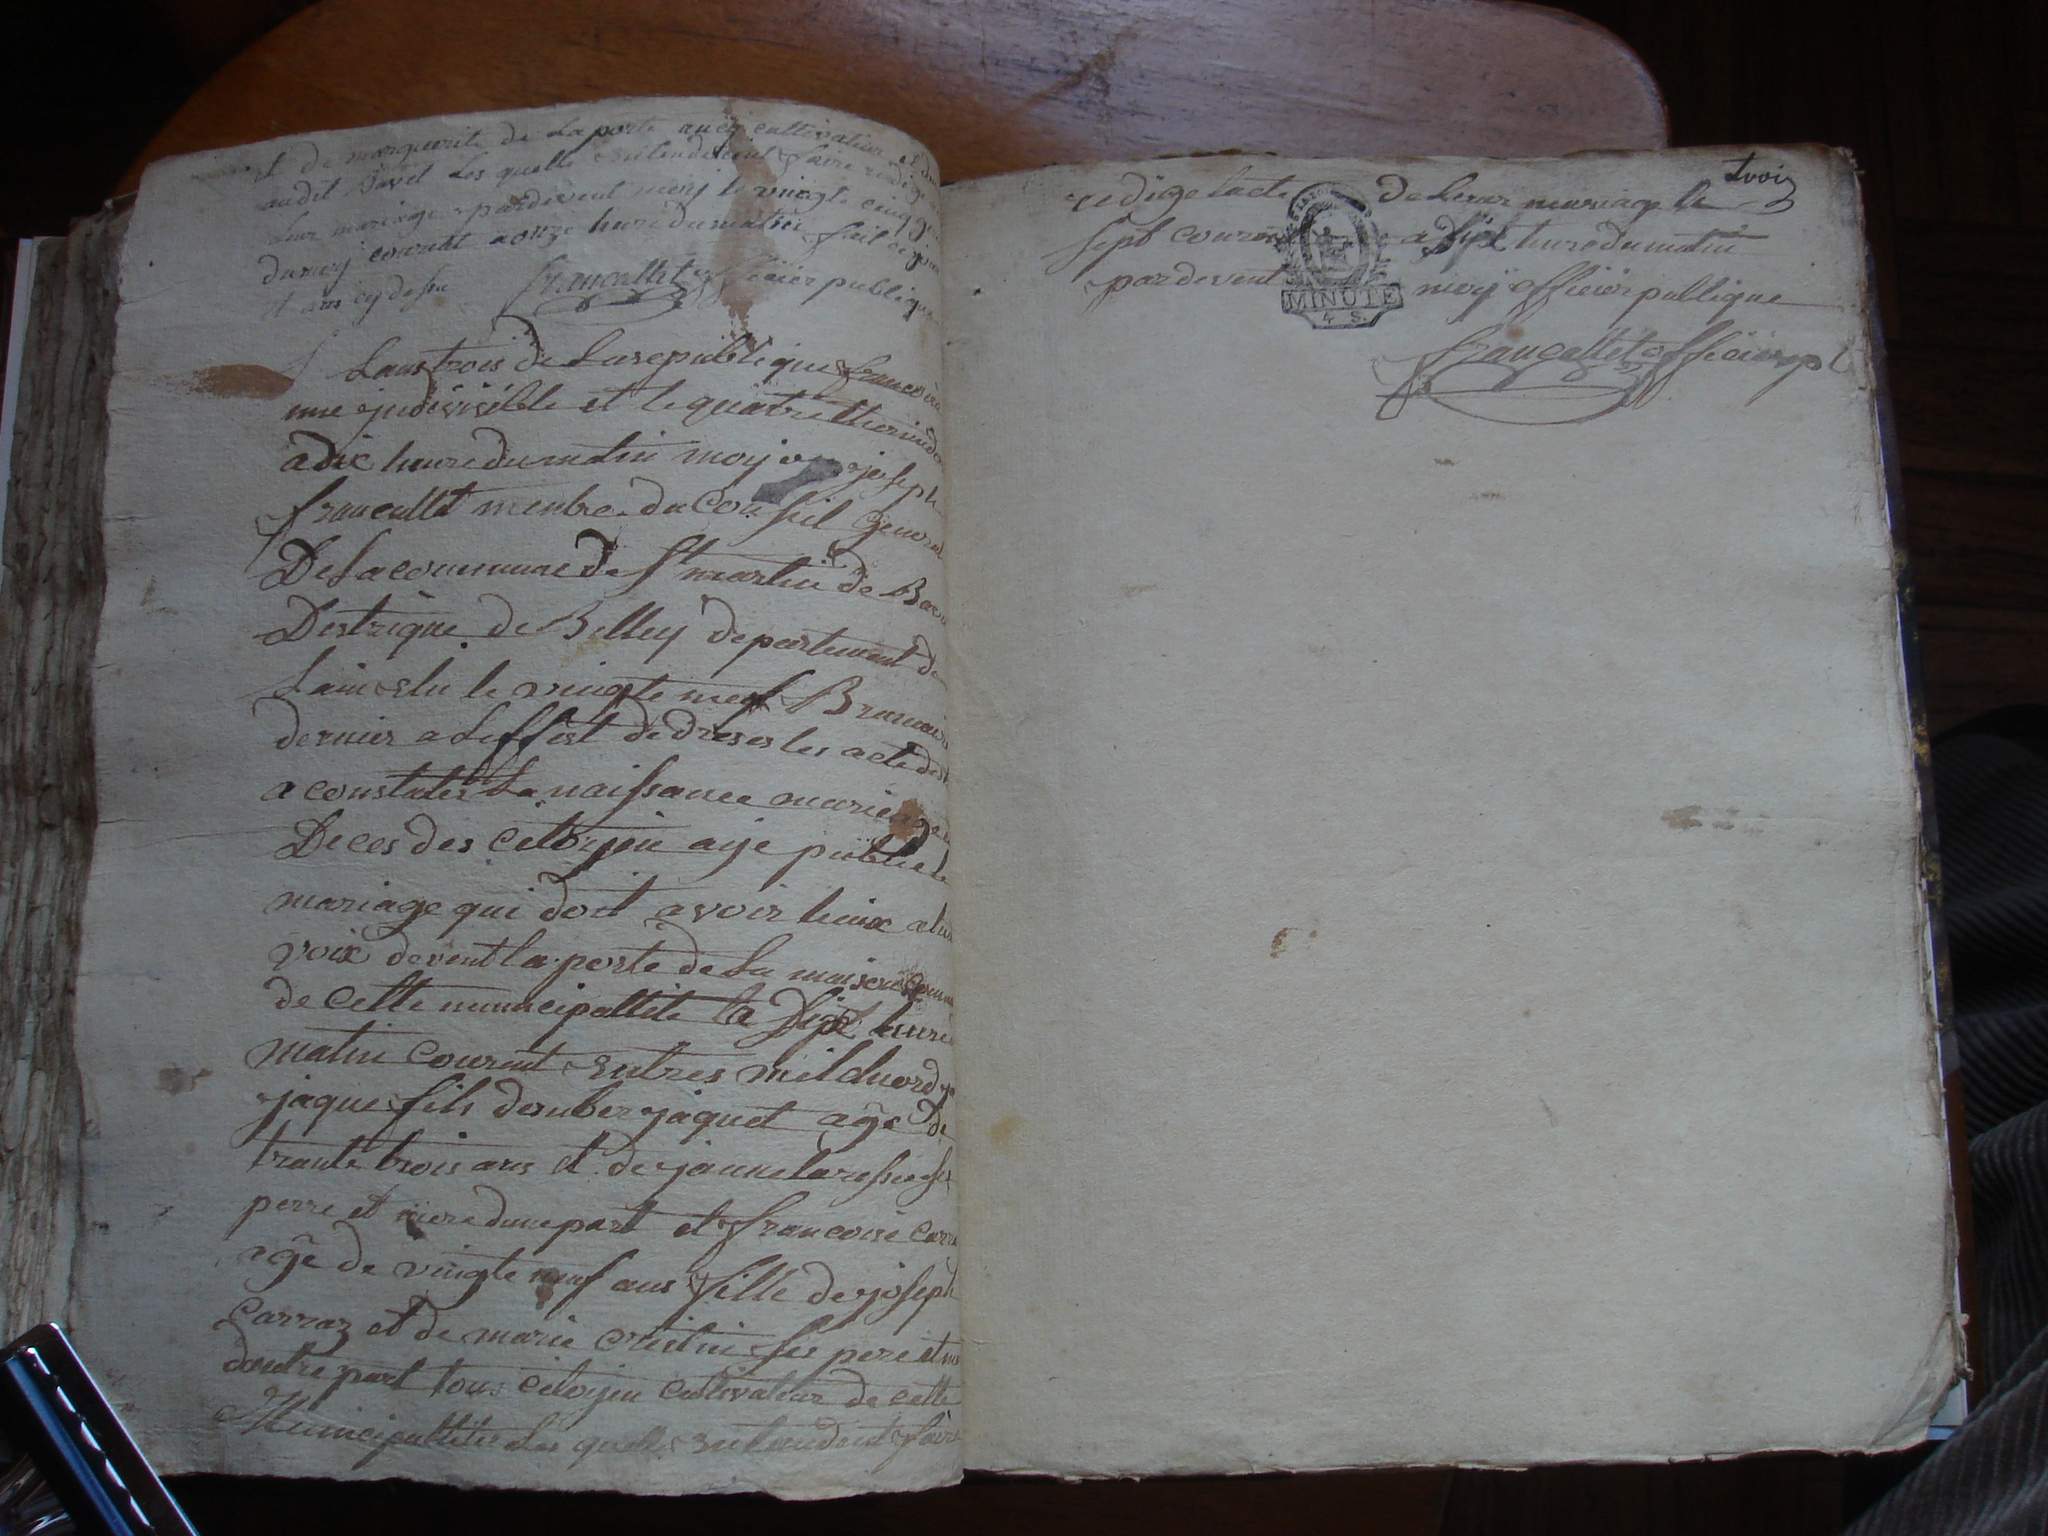 et de marguerite de Laporte aucy cultivateur
audit Javel Les quelle entendisent faire rediger
Leur mariage pardevent moy le vingte cinq
du moy courant a onze heure du matin fait ce jour
et ans cy dessu francallet officier publique
Lans trois de La republique francoise
une indivisible et le quatre thermidor
a dix heure du matin moy joseph
francallet menbre du Conseil general
De La commune de St martin de Bav
Destrique de Belley departement de
Lain elu le vingte neuf Brumaire
dernier a Leffest de dreser les acte des
a constater La naissance mariage
Deces des citoyen aije publie le
mariage qui doit avoir lieux a
voix devent la porte de La maison
de cette municipallite La Dix heure
matin courent entres
jaque fils jaquet age de
trante trois ans et de janne
perre et mere dune part et francoise
age de vingte neuf ans fille de joseph
Carraz et de marie ses pere et
doutre part tous citoyen cultivateur de cette
Municipallite Les quelle entendent faire
trois
redige lacte de Leur mariage le
sept courant a Dix heure du matin
pardevent moy officier publique
MINUTE
4 S.
francallet officier pl